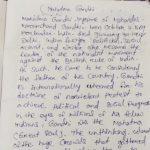 Mahatma Gandhi
Mahatma Gandhi, byname of Mohandas
Karamchand Gandhi, born October 2, 1869
Porbandar, India - died January 30, 1948,
Delhi, Indian lawyer, politician, social
activist, and writer who became the
leader of the nationalist movement
against the British rule of India.
As such, he came to be considered
the father of his country. Gandhi
is internationally esteemed for his
doctrine of nonviolent protest to
achieve political and social progress.
In the eyes of millions of his fellow
Indians, Gandhi was the Mahatma
("Great Soul"). The unthinking adoration
of the huge crowds that gathered